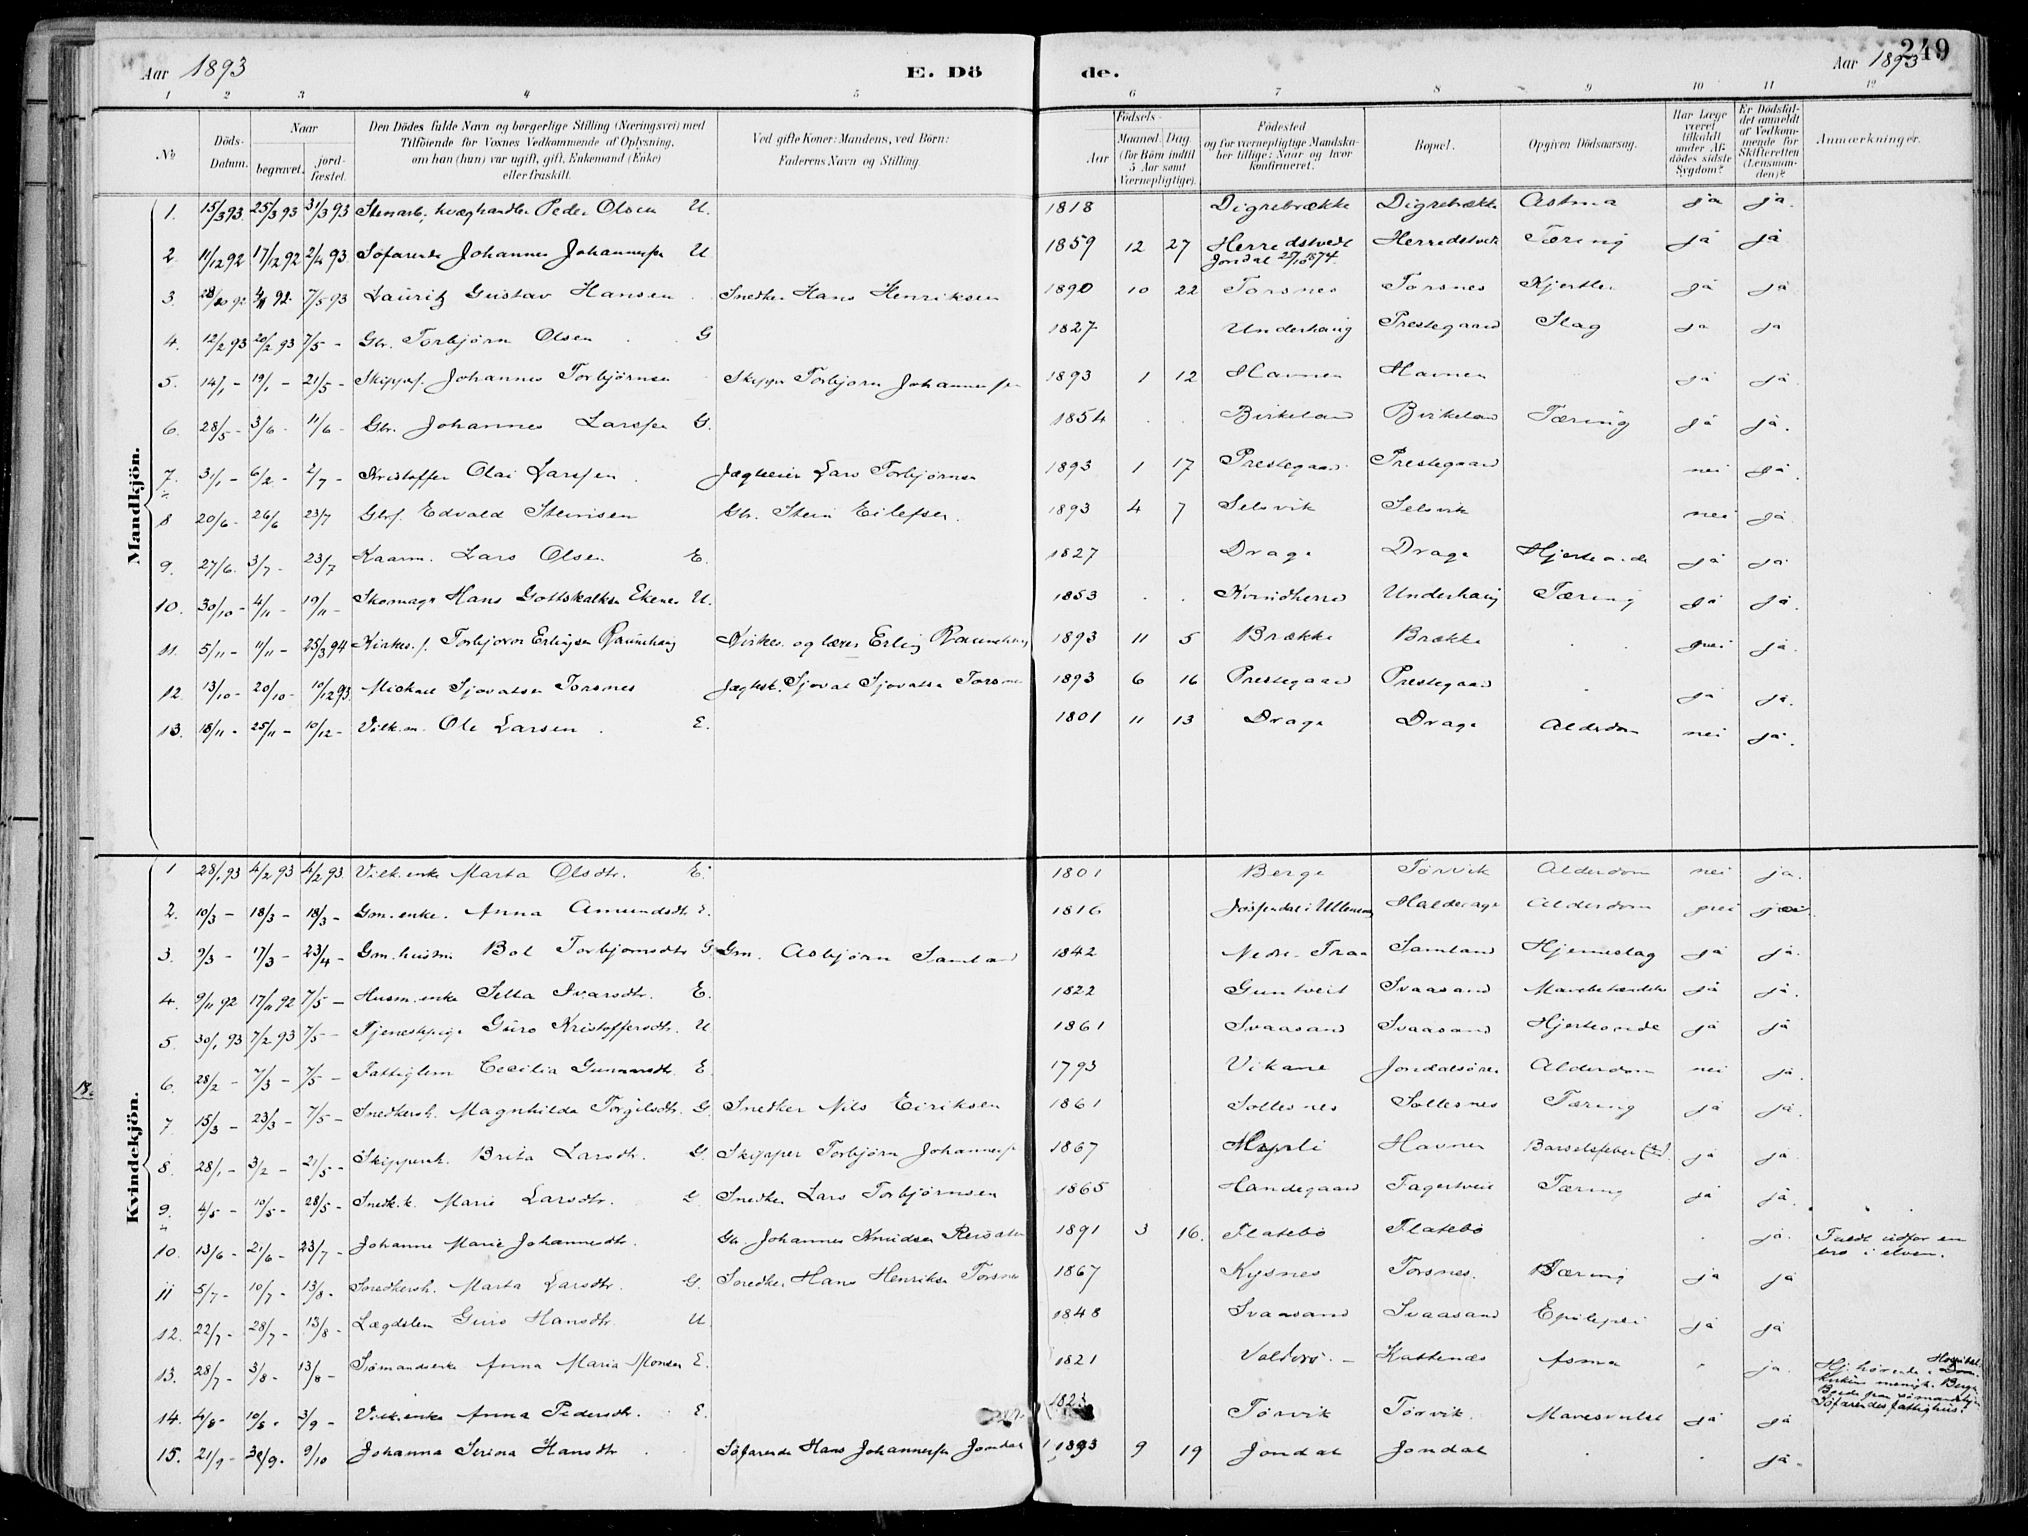 249
Aar 1893
E. Dö
de.
Aar 1893
1 2 3 4 5 6 7 8 9 10 11 12
No
Döds-Datum.
Naar
begravet.
jord-fæstet.
Den Dödes fulde Navn og borgerlige Stilling (Næringsvei) med Tilföiende for Voxnes Vedkommende af Oplysning, om han (hun) var ugift, gift, Enkemand (Enke) eller fraskilt.
Ved gifte Koner: Mandens, ved Börn: Faderens Navn og Stilling.
Födsels-
Aar
Maaned. Dag
(for Börn indtil 5 Aar samt Værnepligtige).
Födested og for værnepligtige Mandskaber tillige: Naar og hvor konfirmeret.
Bopæl.
Opgiven Dödsaarsag.
Har Læge været tilkaldt under Afdödes sidste Sygdom?
Er Dödsfaldet anmeldt af Vedkommende for Skifteretten (Lensmanden)?
Anmærkninger.
Mandkjön.
1. 15/3 93 25/3 93 31/3 93 Stenarb., kvæghandler Peder Olsen U. 1818 Digrebrække Digrebrække Astma ja ja.
2 11/12 92 17/12 92 2/4 93 Söfarende Johannes Johannessen U 1859 12 27 Herredstvedt Herredstvedt Tæring ja ja
Jondal 1874
3. 28/10 92 4/11 92 7/5 93 Lauritz Gustav Hansen Snedker Hans Henriksen 1890 10 22 Torsnes Torsnes Kjertler ja ja
4. 12/2 93 20/2 93 7/5 - Gbr. Torbjörn Olsen G 1827 Underhaug Prestegaard Slag ja ja
5. 14/1 - 19/1 - 21/5 - Skippers. Johannes Torbjörnsen Skipper Torbjörn Johannessen 1893 1 12 Havnen Havnen ja ja.
6. 28/5 - 3/6 - 11/6 - Gbr. Johannes Larssen G. 1854 Birkeland Birkeland Tæring ja ja.
7. 31/1 - 6/2 - 2/7 - Kristoffer Olai Larssen Jægteeier Lars Torbjörnsen 1893 1 17 Prestegaard Prestegaard nei ja.
8 20/6 - 26/6 23/7 Gbrs. Edvald Steinsen Gbr. Stein Eilefsen. 1893 4 7 Selsvik Selsvik nei ja.
9. 27/6. 3/7 - 23/7 Kaarm. Lars Olsen E. 1827 Drage Drage Hjerteonde ja ja
10. 30/10 - 4/11 - 19/11 - Skomager Hans Gottskalksen Ekenes U. 1853 Kvindherred Underhaug Tæring ja ja.
11. 5/11 - 11/11 - 25/3 94 Kirkes. s. Torbjörn Erlingsen Raunehaug Kirkes. og lærer Erling Raunehaug 1893 11 5 Brække Brække nei ja.
12 13/10 - 20/10 - 10/12 93. Mickael Sjovatsen Torsnes Jægtesk. Sjovat Sjovatsen Torsnes 1893 6 16 Prestegaard Prestegaard ja ja.
13. 18/11 - 25/11 - 10/12 - Vilk.m. Ole Larsen E. 1801 11 13 Drage Drage Alderdom nei ja.
Kvindekjön.
1 28/1 93 4/2 93 4/2 93. Vilk. enke Marta Olsdtr. E. 1801 Berge Törvik Alderdom nei ja.
2. 10/3 - 18/3 - 18/3 - Gm. enke. Anna Amundsdtr. E. 1816 Halderage Alderdom nei
3. 9/3 - 17/3 - 23/4 - Gm. hustru Bol Torbjörnsdtr G Gm. Asbjörn Samland 1842 Nedre Traa Samland Hjerneslag ja ja.
4. 9/11 92 17/11 92 7/5 - Husm. enke Selta Ivarsdtr. E. 1822 Guntveit Svaasand Mavebetændelse ja ja.
5. 30/1 93 7/2 93 7/5 - Tjenestepige Guro Kristoffersdtr. U 1861 Svaasand Svaasand Hjerteonde ja ja
6. 28/2 - 7/3 - 7/5 - Fattiglem Cecilia Gunnarsdtr E. 1793 Vikane Jondalsören Alderdom nei ja.
7. 15/3 - 23/3 - 7/5 - Snedkersh. Magnhilda Torgilsdtr. G. Snedker Nils Eiriksen 1861 Sollesnes Sollesnes Tæring ja ja.
8. 28/1 - 3/2 - 21/5 - Skippersh. Brita Larsdtr. G. Skipper Torbjörn Johannessen 1867 Myrli Havnen Barselfeber ja ja.
9. 4/5 - 10/5 - 28/5 - Snedk.k. Marie Larsdtr. G Snedker Lars Torbjörnsen 1865 Handegaard Fagertveit Tæring ja ja.
10. 13/6 - 21/6 - 23/7 - Johanne Marie Johannesdtr. Gbr. Johannes Knudsen 1891 3 16. Flatebö Flatebö ja. Faldt udfor en bro i elven.
11 5/7 - 10/7 - 13/8 - Snedkersh. Marta Larsdtr. G. Snedker Hans Henriksen Torsnes 1867 Kysnes Torsnes. Tæring ja ja
12. 22/7 - 28/7 - 13/8 - Lægdslem Guro Hansdtr. U. 1848 Svaasand Svaasand Epilepsi ja ja
13. 28/7 - 3/8 - 13/8 - Sömandsenke Anna Maria Monsen E. 1821 Kattenæs Asma ja.
14. 4/8 - 10/8 - 3/9 - Vilk. enke Anna Pedersdtr. E. 1823 Törvik Törvik. Mavesvulst ja ja
15. 21/9 - 30/9. 9/10 Johanna Serina Hansdtr Söfarende Hans Johannessen Jondal 1893 9 19 Jondal Jondal ja.